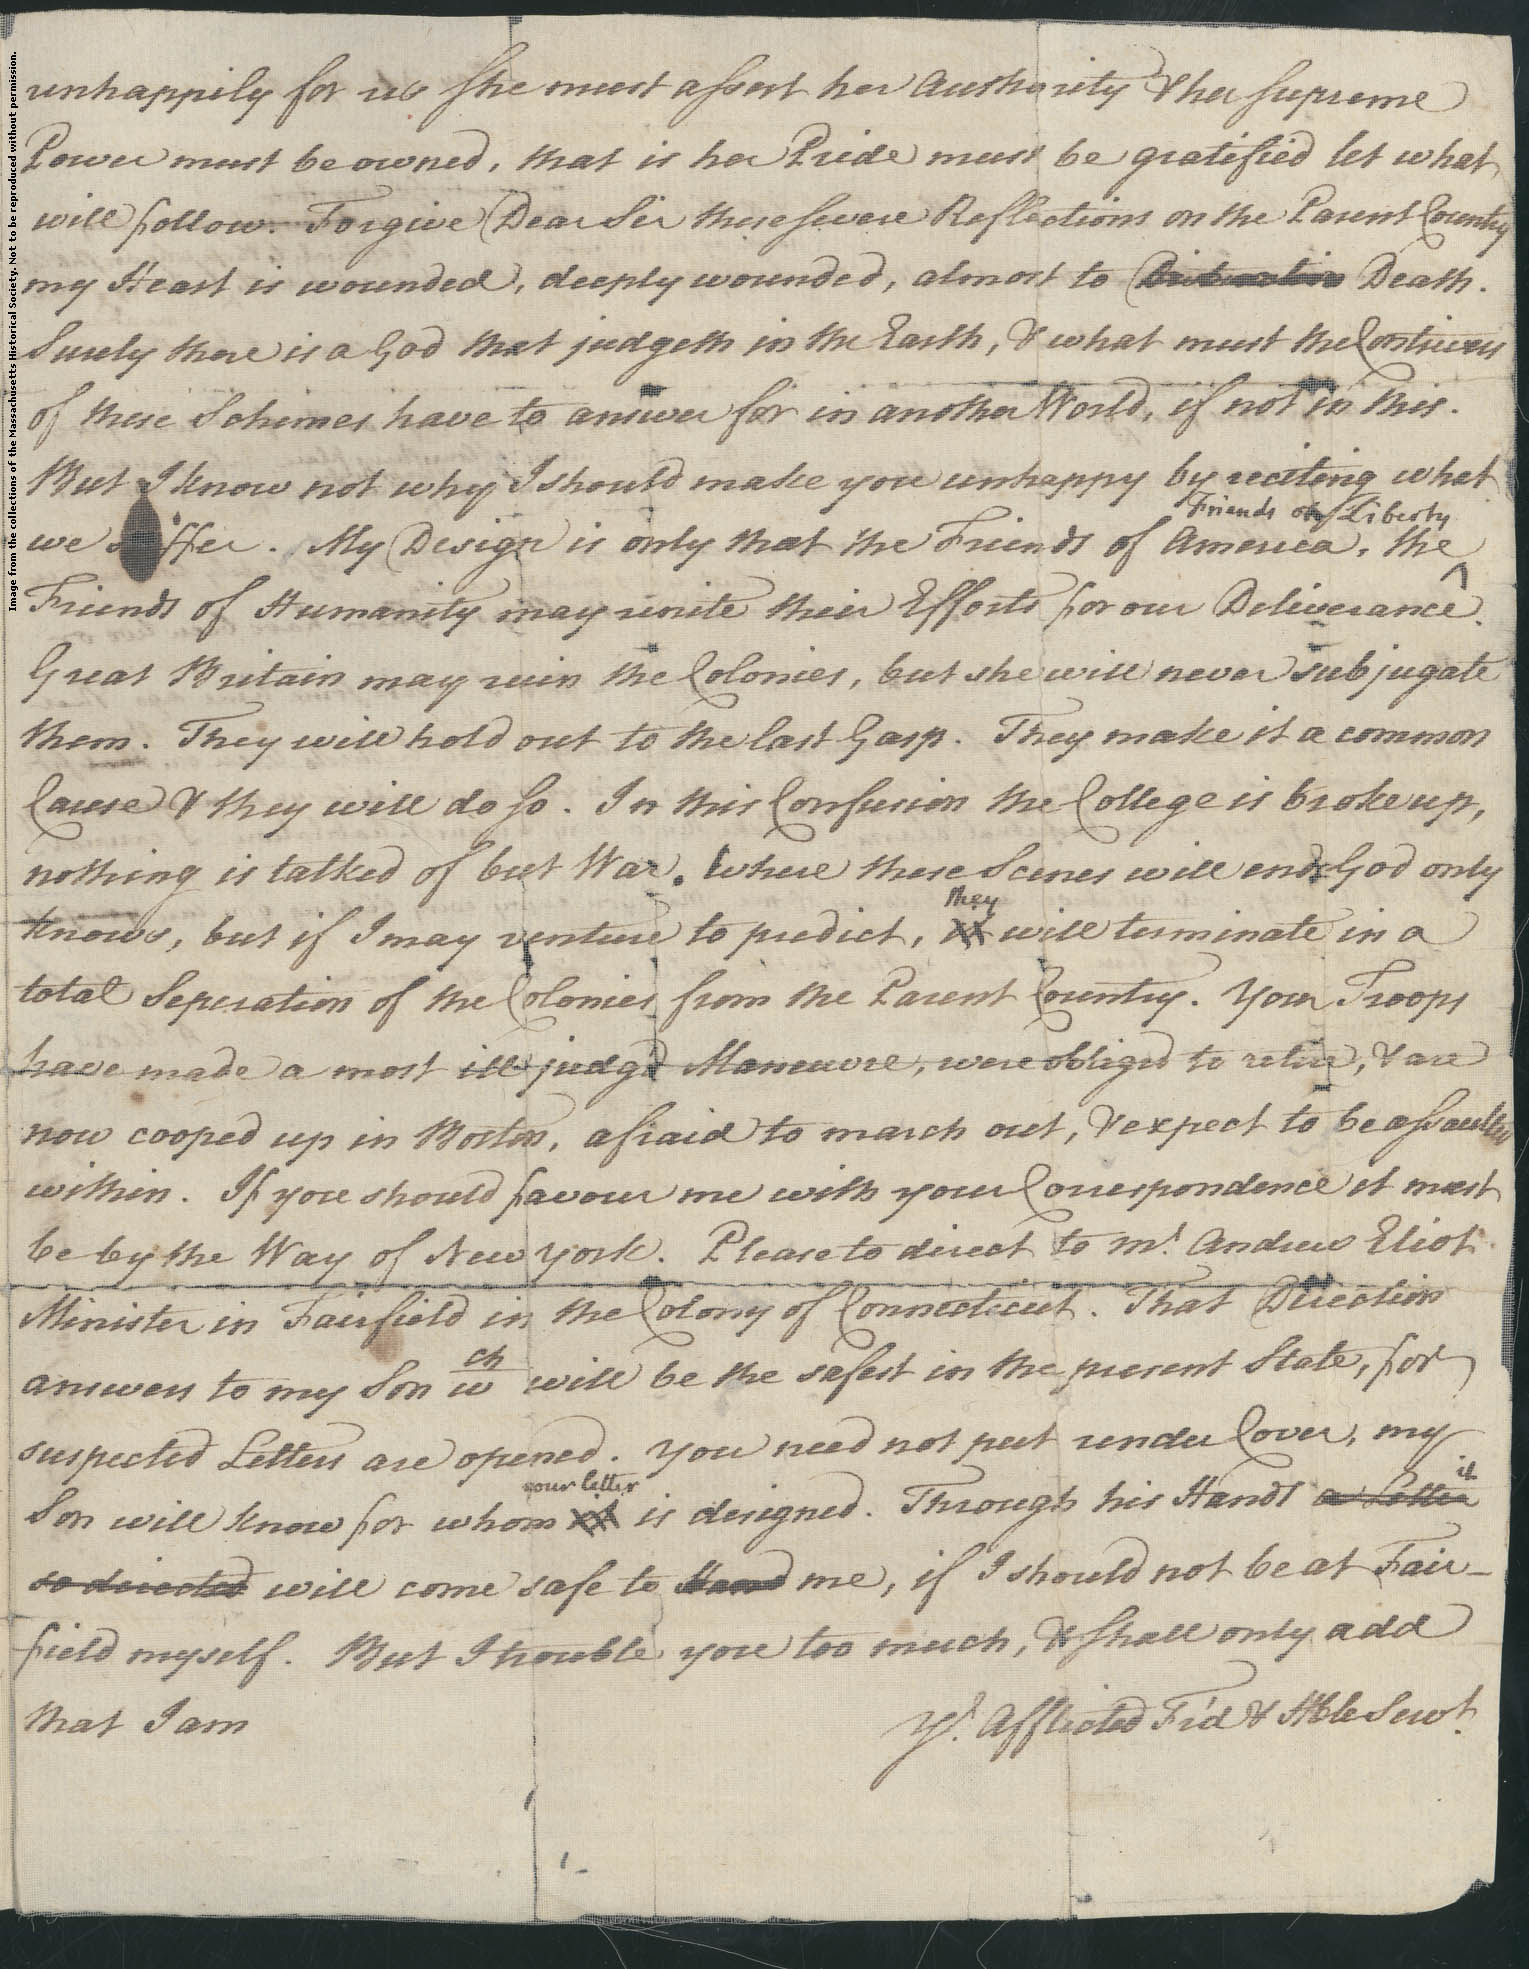 Image from the collections of the Massachusetts Historical Society. Not to be reproduced without permission.
unhappily for us she must assert her Authority & her supreme
Power must be owned, that is her Pride must be gratified let what
will follow. Forgive Dear Sir these severe Reflections on the Parent Country
my Heart is wounded, deeply wounded, almost to Death.
Surely there is a God that judgeth in the Earth, & what must the Contrivers
of these Schemes have to answer for in another World, if not in this.
But I know not why I should make you unhappy by reciting what
Friends of Liberty
we suffer. My Design is only that the Friends of America, the ^
Friends of Humanity may unite their Efforts for our Deliverance.
Great Britain may ruin the Colonies, but she will never subjugate
them. They will hold out to the last Gasp. They make it a common
Cause & they will do so. In this Confusion the College is broke up,
nothing is talked of but War. Where these Scenes will end God only
they
knows, but if I may venture to predict, will terminate in a
total Seperation of the Colonies from the Parent Country. Your Troops
have made a most ill judg'd Maneuvre, were obliged to retire, & are
now cooped up in Boston, afraid to march out, & expect to be assaulted
within. If you should favour me with your Correspondence it must
be by the Way of New York. Please to direct to Mr. Andrew Eliot
Minister in Fairfield in the Colony of Connecticut. That Direction
answers to my Son wch will be the safest in the present State, for
suspected Letters are opened. You need not put under Cover, my
your letter it
Son will know for whom is designed. Through his Hands a Letter
so directed will come safe to Hand me, if I should not be at Fair-
field myself. But I trouble you too much, & shall only add
that I am Yr. Afflicted Fr'd & Hble Servt.